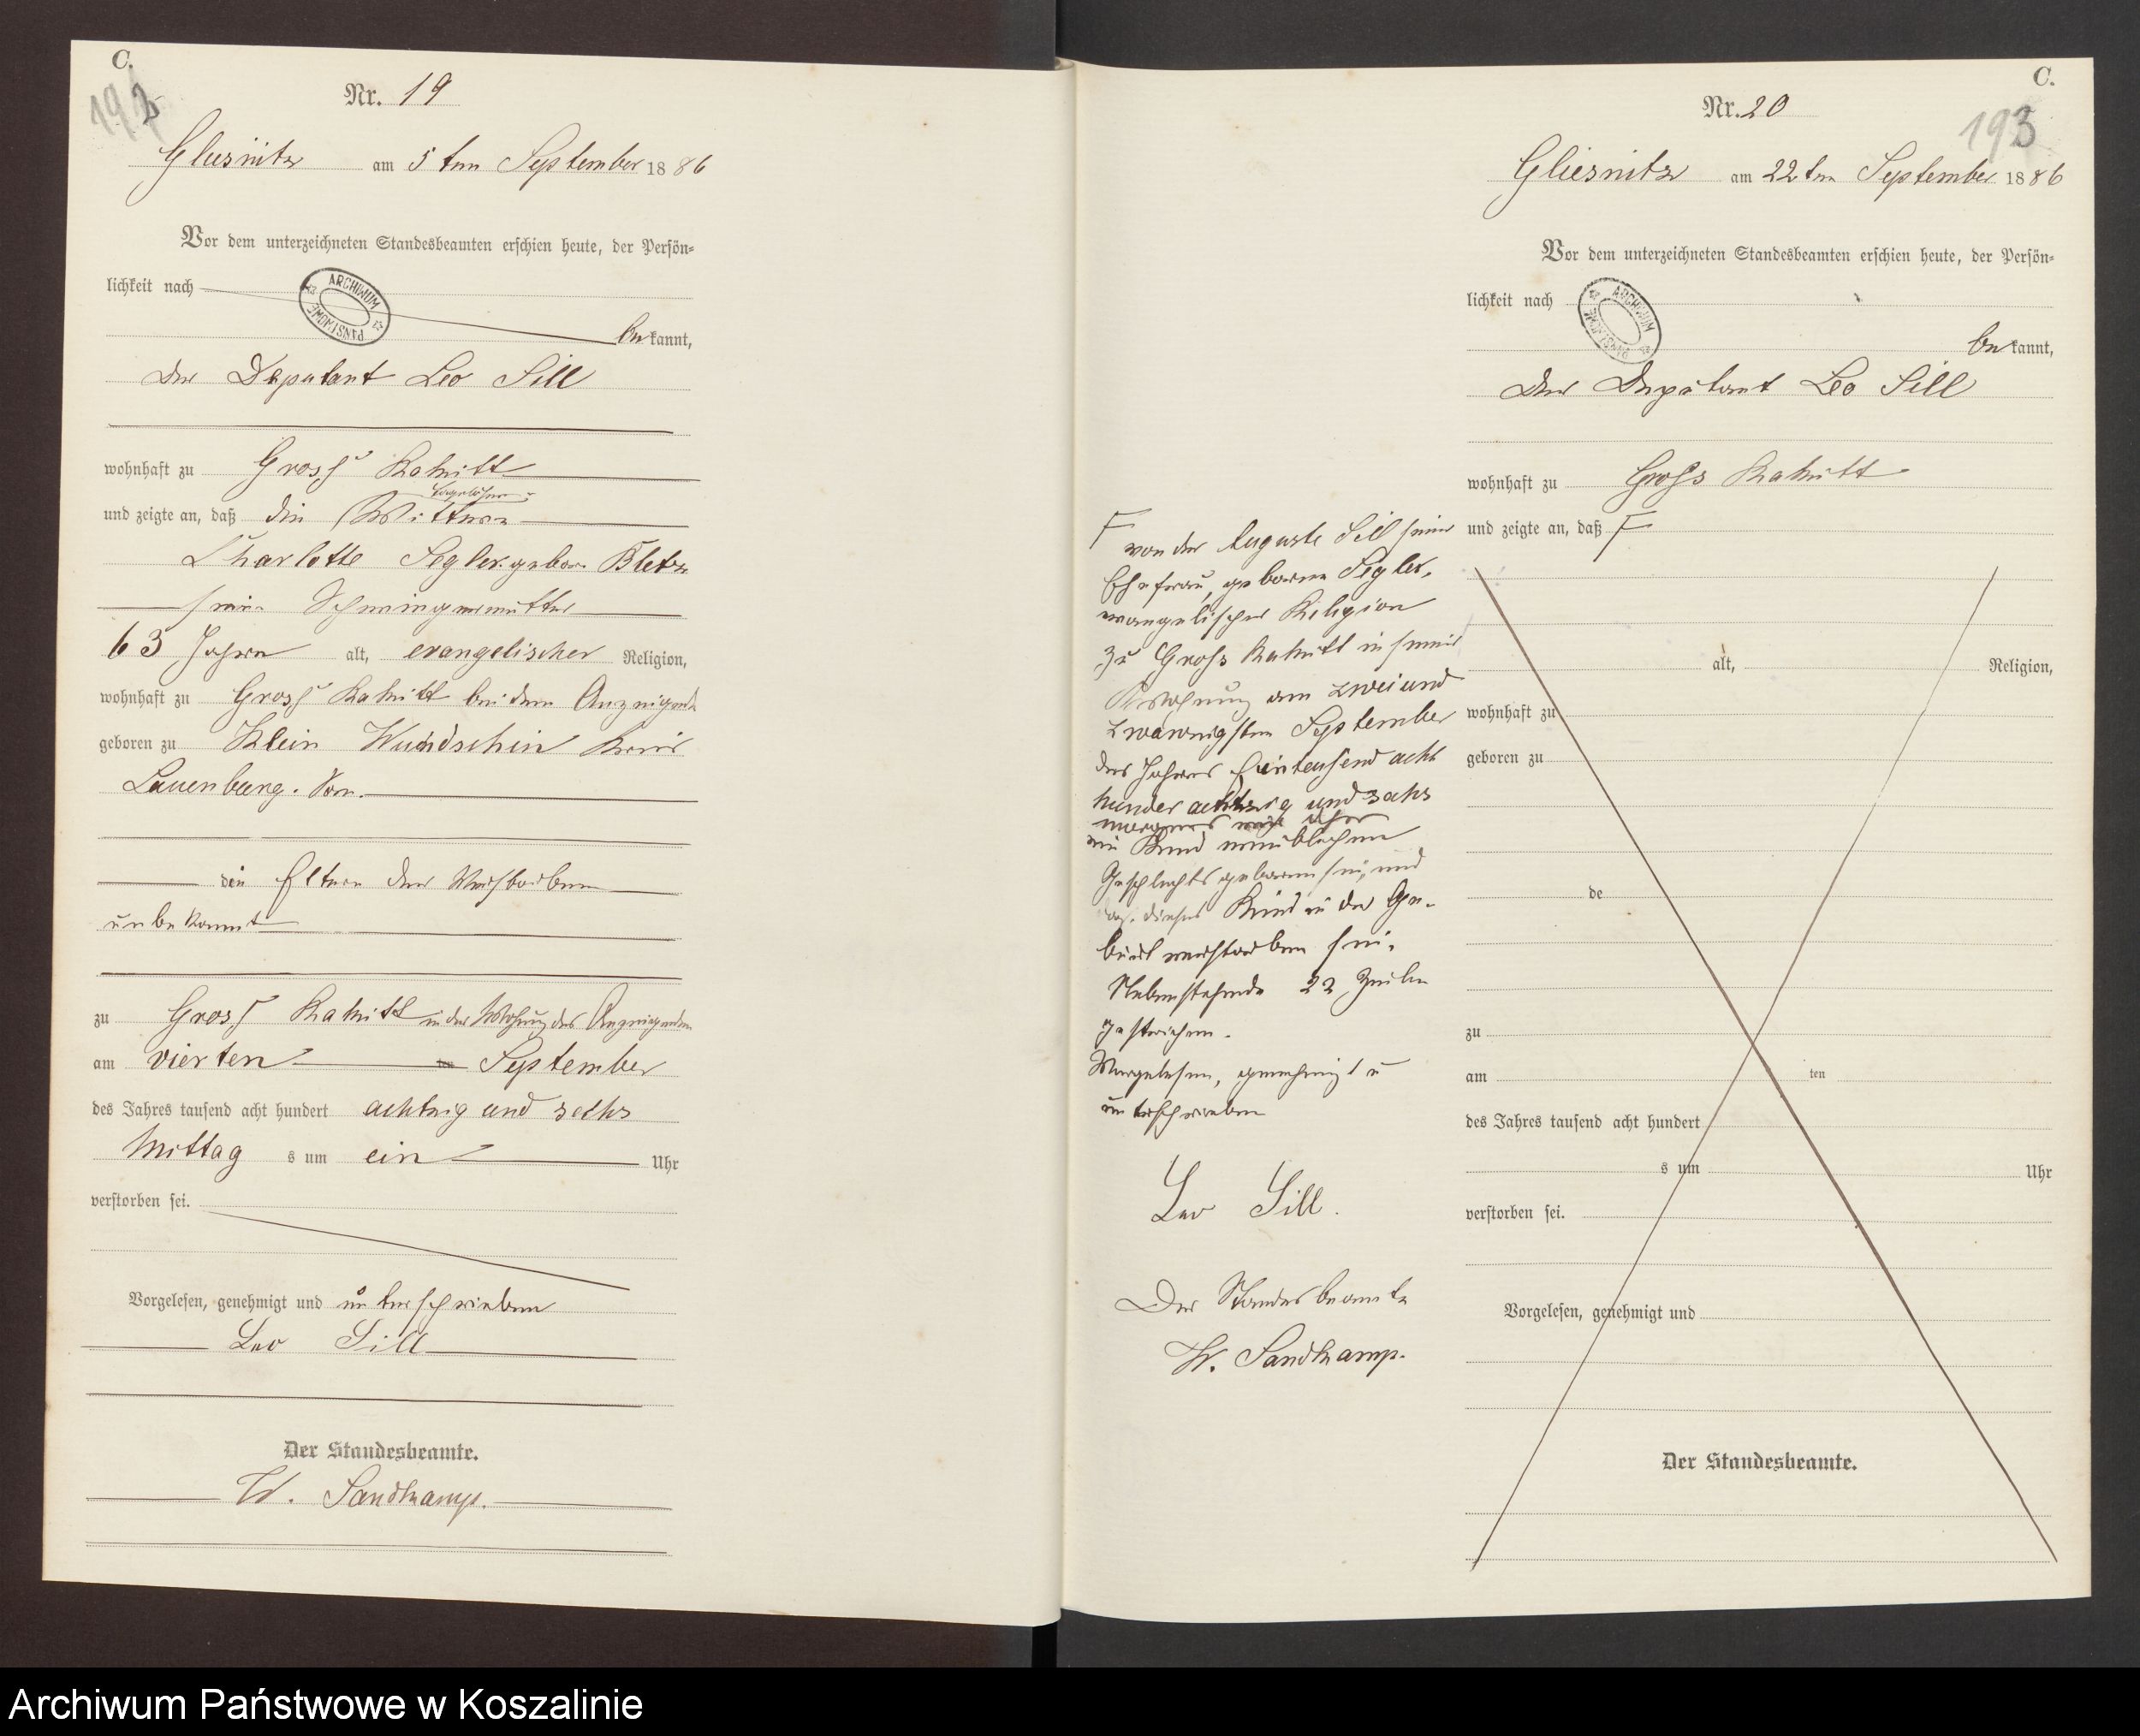 C.
192
Nr. 19
Gliesnitz am 5ten September 1886
Vor dem unterzeichneten Standesbeamten erschien heute, der Persön=
lichkeit nach
ARCHIWUM PAŃSTWOWE
bekannt,
der Deputant Leo Sill
wohnhaft zu Gross Rakitt
Tagelöhner
und zeigte an, daß die Wittwe
Charlotte Segler gebor. Bletz
seine Schwiegermutter
63 Jahre alt, evangelischer Religion,
wohnhaft zu Gross Rakitt bei dem Anzeigend
geboren zu Klein Wundschin Kreis
Lauenburg. Pom.
die Eltern der Verstorbenen
unbekannt
zu Gross Rakitt in der Wohnung des Anzeigenden
am vierten ten September
des Jahres tausend acht hundert achtzig und sechs
Mittag s um ein Uhr
verstorben sei.
Vorgelesen, genehmigt und unterschrieben
Leo Sill
Der Standesbeamte.
W. Sandkamp.
C.
193
Nr. 20
Gliesnitz am 22ten September 1886
Vor dem unterzeichneten Standesbeamten erschien heute, der Persön=
lichkeit nach
ARCHIWUM PAŃSTWOWE
bekannt,
der Deputant Leo Sill
wohnhaft zu Gross Rakitt
und zeigte an, daß F
F von der Auguste Sill seiner
Ehefrau, geborne Segler,
evangelischer Religion
zu Gross Rakitt in seiner
Wohnung am zweiund
zwanzigsten September
des Jahres Eintausend acht
hunder achtzig und sechs
morgens Uhr
ein Kind männlichen
Geschlechts geboren sei, und
daß dieses Kind in der Ge-
burt verstorben sei.
Nebenstehende 22 Zeilen
gestrichen.
Vorgelesen, genehmigt u
unterschrieben
Leo Sill.
Der Standesbeamte
W. Sandkamp.
alt, Religion,
wohnhaft zu
geboren zu
de
zu
am ten
des Jahres tausend acht hundert
s um Uhr
verstorben sei.
Vorgelesen, genehmigt und
Der Standesbeamte.
Archiwum Państwowe w Koszalinie